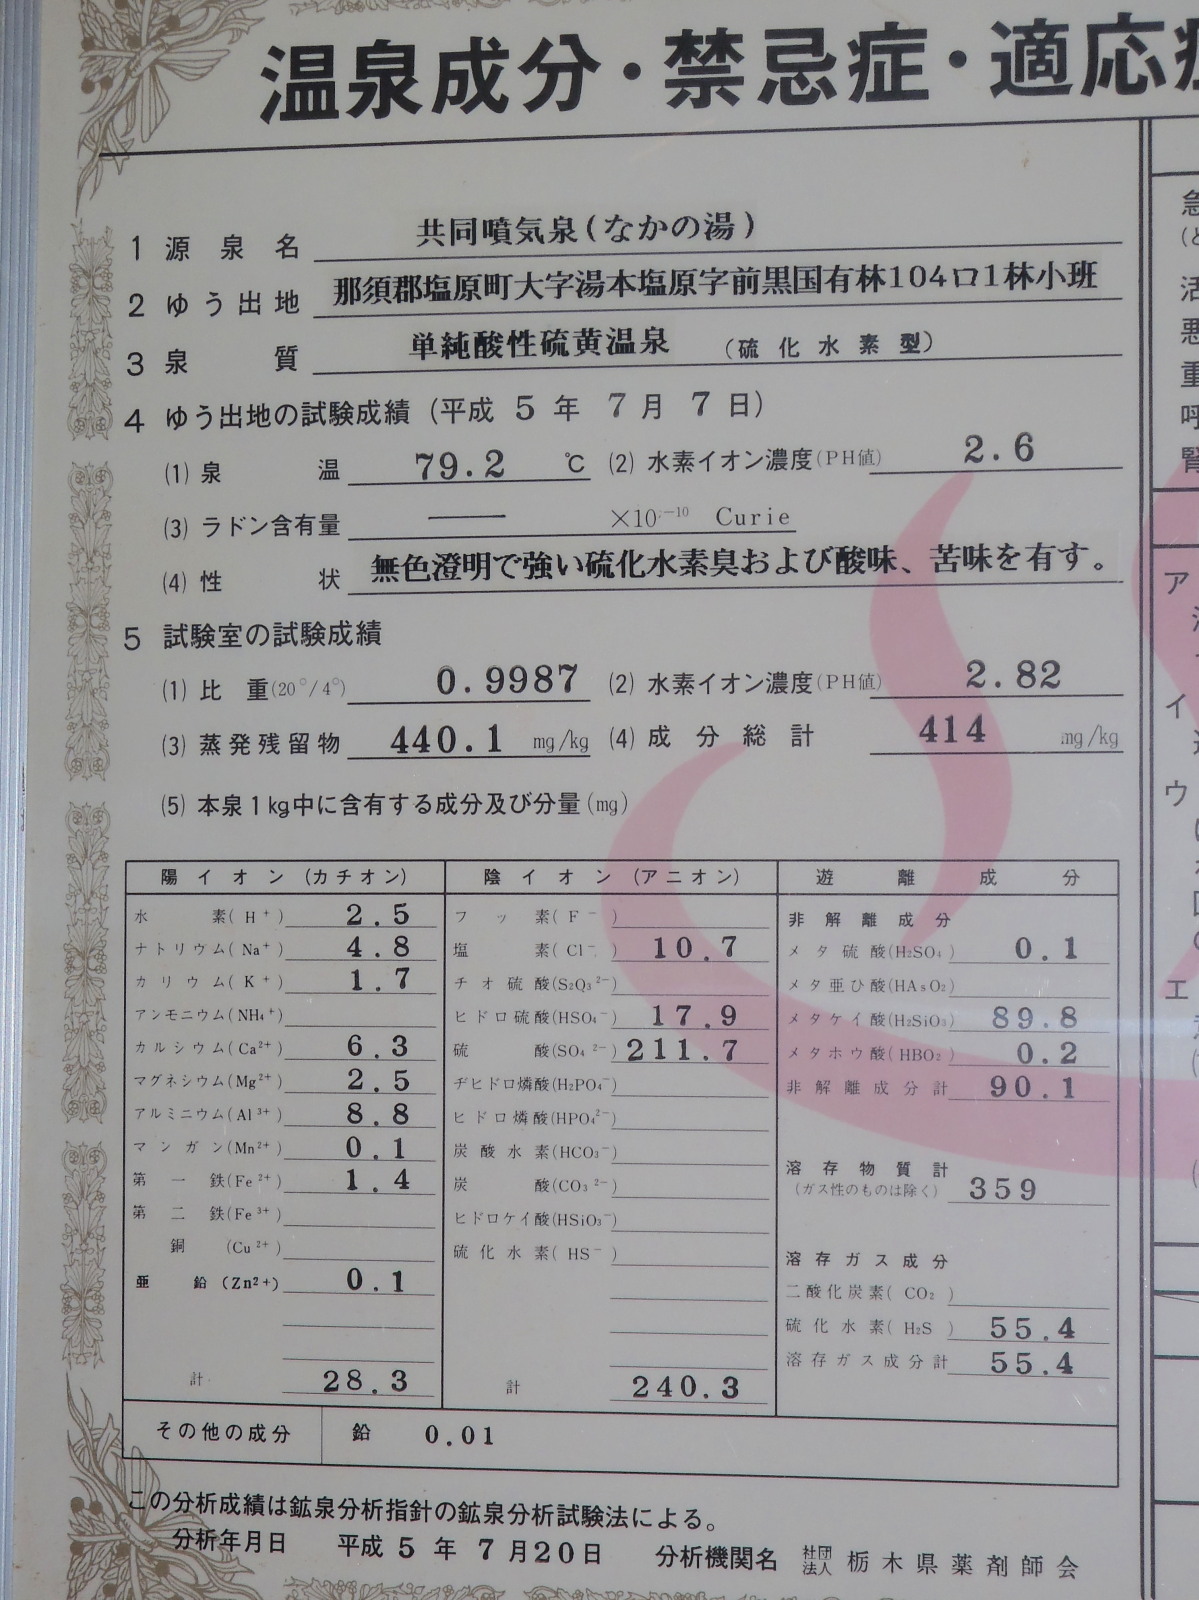 温泉成分・禁忌症・適応症
1 源泉名 共同噴気泉(なかの湯)
2 ゆう出地 那須郡塩原町大字湯本塩原字前黒国有林104ロ1林小班
3 泉質 単純酸性硫黄温泉 (硫化水素型)
4 ゆう出地の試験成績 (平成 5 年 7 月 7 日)
(1) 泉温 79.2 ℃ (2) 水素イオン濃度(PH値) 2.6
(3) ラドン含有量 — ×10⁻¹⁰ Curie
(4) 性状 無色澄明で強い硫化水素臭および酸味、苦味を有す。
5 試験室の試験成績
(1) 比重(20°/4°) 0.9987 (2) 水素イオン濃度(PH値) 2.82
(3) 蒸発残留物 440.1 mg/kg (4) 成分総計 414 mg/kg
(5) 本泉1kg中に含有する成分及び分量(mg)
陽イオン (カチオン)
水素(H⁺) 2.5
ナトリウム(Na⁺) 4.8
カリウム(K⁺) 1.7
アンモニウム(NH₄⁺)
カルシウム(Ca²⁺) 6.3
マグネシウム(Mg²⁺) 2.5
アルミニウム(Al³⁺) 8.8
マンガン(Mn²⁺) 0.1
第一鉄(Fe²⁺) 1.4
第二鉄(Fe³⁺)
銅 (Cu²⁺)
亜鉛(Zn²⁺) 0.1
計 28.3
陰イオン (アニオン)
フッ素(F⁻)
塩素(Cl⁻) 10.7
チオ硫酸(S₂O₃²⁻)
ヒドロ硫酸(HSO₄⁻) 17.9
硫酸(SO₄²⁻) 211.7
ヂヒドロ燐酸(H₂PO₄⁻)
ヒドロ燐酸(HPO₄²⁻)
炭酸水素(HCO₃⁻)
炭酸(CO₃²⁻)
ヒドロケイ酸(HSiO₃⁻)
硫化水素(HS⁻)
計 240.3
遊離成分
非解離成分
メタ硫酸(H₂SO₄) 0.1
メタ亜ひ酸(HAsO₂)
メタケイ酸(H₂SiO₃) 89.8
メタホウ酸(HBO₂) 0.2
非解離成分計 90.1
溶存物質計
(ガス性のものは除く) 359
溶存ガス成分
二酸化炭素(CO₂)
硫化水素(H₂S) 55.4
溶存ガス成分計 55.4
その他の成分 鉛 0.01
この分析成績は鉱泉分析指針の鉱泉分析試験法による。
分析年月日 平成 5 年 7 月20日 分析機関名 社団法人 栃木県薬剤師会
ア
イ
ウ
エ